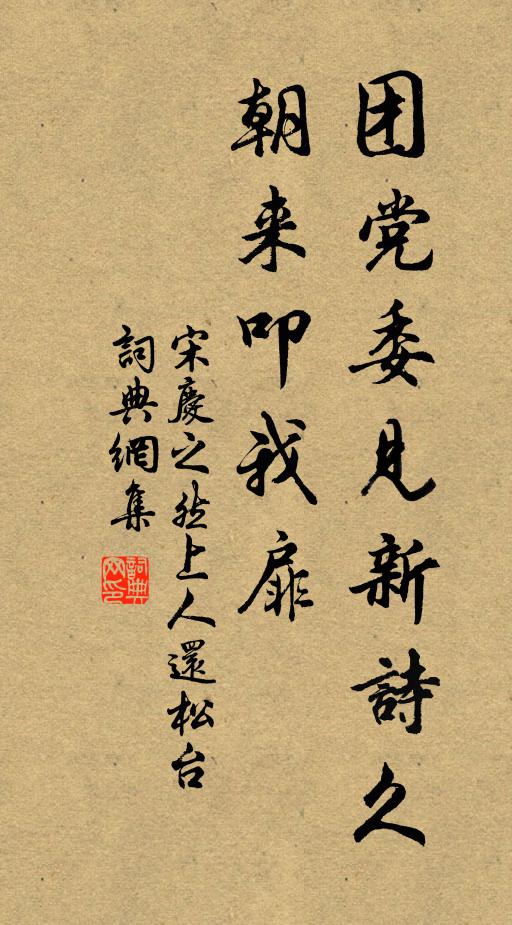 团党委見新詩久
朝来叩我扉
宋慶之然上人還松台
詞典網集
詞典网印